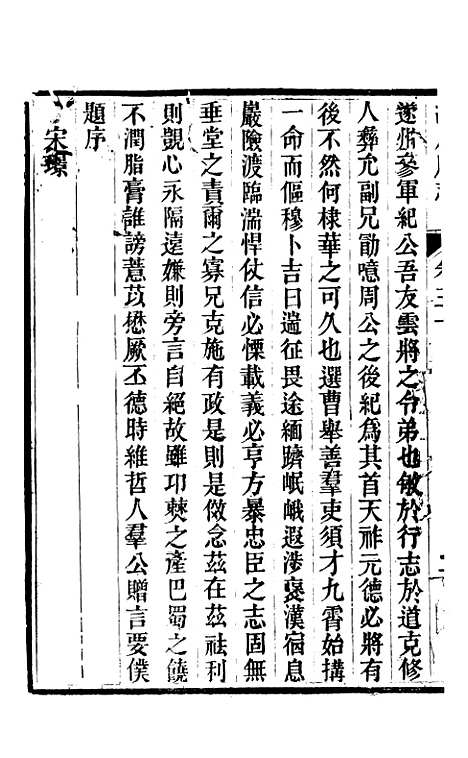 遂州參軍紀公吾友雲將之令弟也敏於行志於道克修
人彝允副兄勖噫周公之後紀爲其首天祚元德必將有
後不然何棣華之可久也選曹舉善羣吏須才九霄始搆
一命而傴穆卜吉日遄征畏途緬躋岷峨遐涉褒漢宿息
嚴險渡臨湍悍仗信必慄載義必亨方暴忠臣之志固無
垂堂之責爾之寡兄克施有政是則是傚念茲在茲祛利
則覬心永隔遠嫌則旁言自絕故雖卭僰之產巴蜀之饒
不潤脂膏誰謗薏苡懋厥丕德時維哲人羣公贈言要僕
題序
宋璟